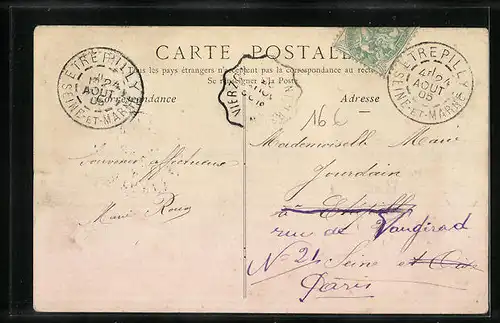 CARTE POSTALE
Tous les pays étrangers n'acceptent pas la correspondance au recto
Se renseigner à la Poste
Correspondance
Adresse
ETREPILLY
24
AOUT
05
SEINE-ET-MARNE
VIERZ
ETREPILLY
24
AOUT
05
SEINE-ET-MARNE
16 c
Souvenir affectueux
Marie
Mademoiselle Marie
Jourdain
à
rue de Vaugirad
No 21 Seine et Oise
Paris